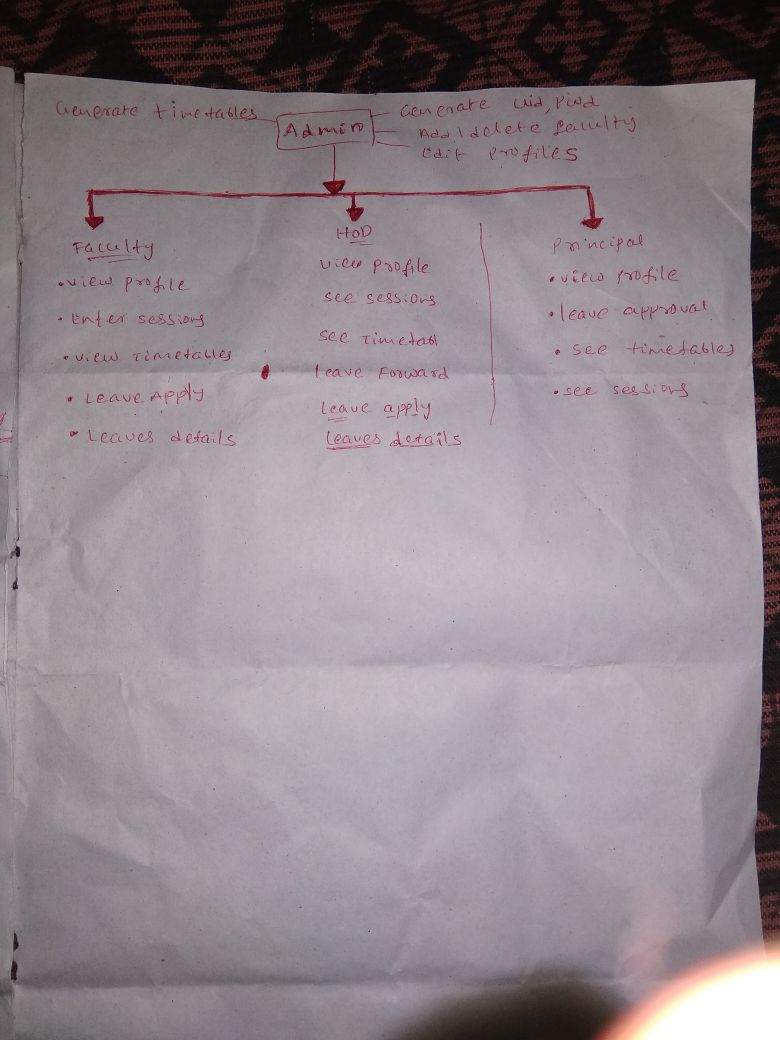 Generate timetables
Admin
Generate uid, pwd
Add/delete faculty
Edit profiles
Faculty
• view profile
• Enter sessions
• view Timetables
• Leave Apply
• Leaves details
HoD
view profile
see sessions
see Timetabl
leave Forward
leave apply
leaves details
Principal
• view profile
• leave approval
• see timetables
• see sessions